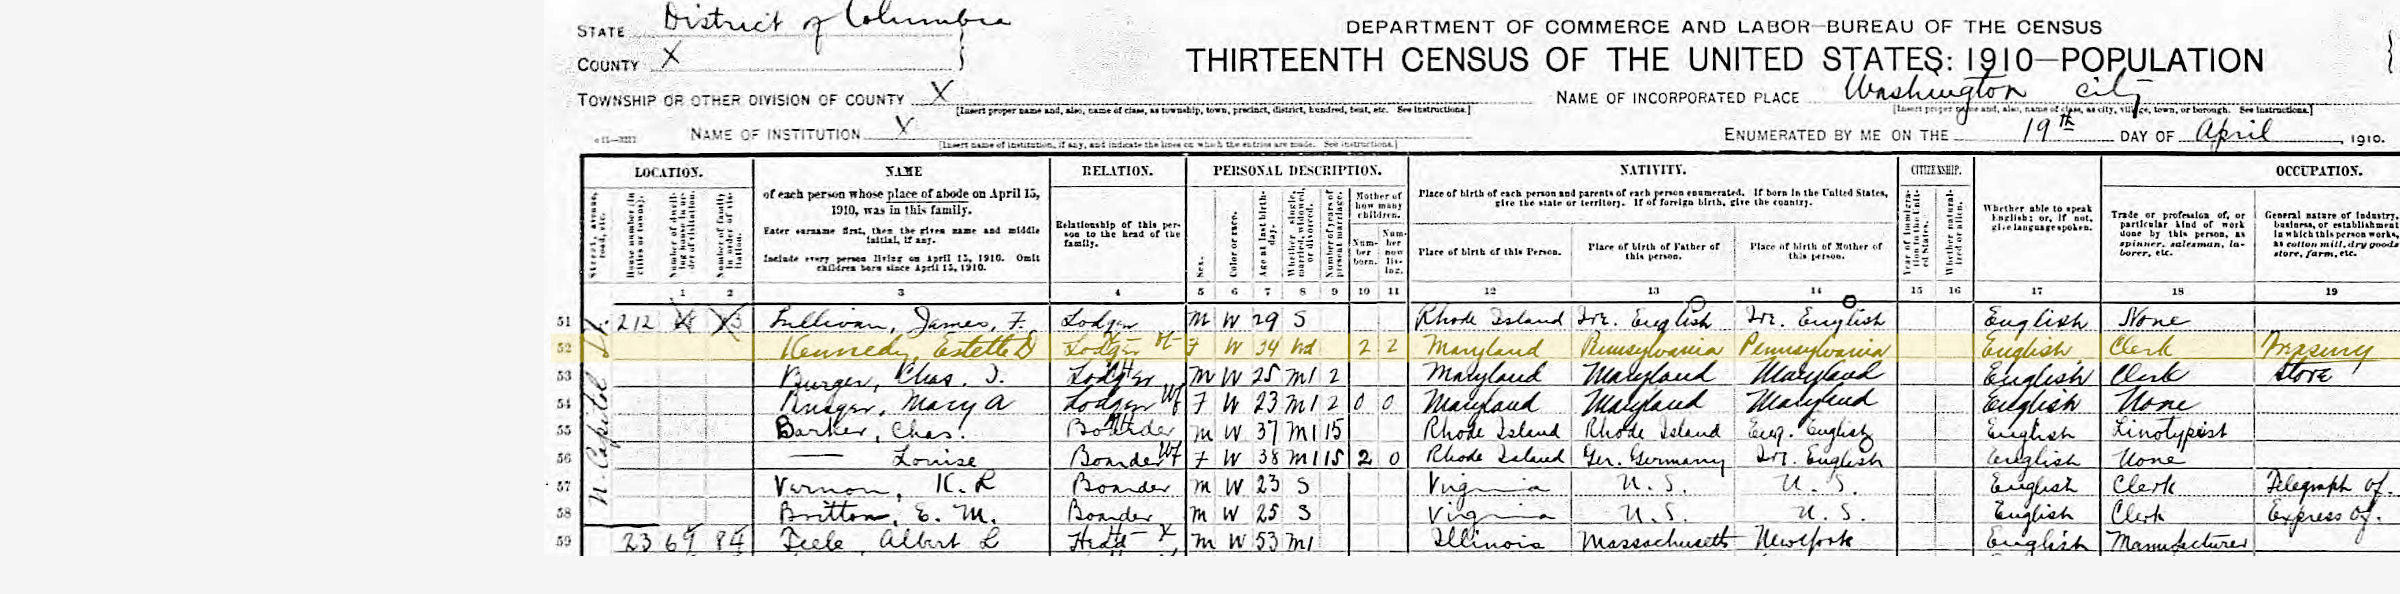 STATE District of Columbia
COUNTY X
TOWNSHIP OR OTHER DIVISION OF COUNTY X
[Insert proper name and, also, name of class, as township, town, precinct, district, hundred, beat, etc. See instructions.]
NAME OF INSTITUTION X
[Insert name of institution, if any, and indicate the lines on which the entries are made. See instructions.]
DEPARTMENT OF COMMERCE AND LABOR—BUREAU OF THE CENSUS
THIRTEENTH CENSUS OF THE UNITED STATES: 1910—POPULATION
NAME OF INCORPORATED PLACE Washington city
[Insert proper name and, also, name of class, as city, village, town, or borough. See instructions.]
ENUMERATED BY ME ON THE 19th DAY OF April, 1910.
LOCATION. NAME RELATION. PERSONAL DESCRIPTION. NATIVITY. CITIZENSHIP. OCCUPATION.
Street, avenue, road, etc.
House number (in cities or towns).
Number of dwelling house in order of visitation.
Number of family in order of visitation.
of each person whose place of abode on April 15, 1910, was in this family.
Enter surname first, then the given name and middle initial, if any.
Include every person living on April 15, 1910. Omit children born since April 15, 1910.
Relationship of this person to the head of the family.
Sex.
Color or race.
Age at last birthday.
Whether single, married, widowed, or divorced.
Number of years of present marriage.
Mother of how many children.
Number born.
Number now living.
Place of birth of each person and parents of each person enumerated. If born in the United States, give the state or territory. If of foreign birth, give the country.
Place of birth of this Person.
Place of birth of Father of this person.
Place of birth of Mother of this person.
Year of immigration to the United States.
Whether naturalized or alien.
Whether able to speak English; or, if not, give language spoken.
Trade or profession of, or particular kind of work done by this person, as spinner, salesman, laborer, etc.
General nature of industry, business, or establishment in which this person works, as cotton mill, dry goods store, farm, etc.
1 2 3 4 5 6 7 8 9 10 11 12 13 14 15 16 17 18 19
N. Capitol St.
51 212 Sullivan, James, F. Lodger M W 29 S Rhode Island Ire. English Ire. English English None
52 Kennedy, Estelle D Lodger F W 34 Wd 2 2 Maryland Pennsylvania Pennsylvania English Clerk Treasury
53 Burger, Chas. J. Lodger M W 25 M1 2 Maryland Maryland Maryland English Clerk Store
54 Burger, Mary A Lodger Wf F W 23 M1 2 0 0 Maryland Maryland Maryland English None
55 Barker, Chas. Boarder M W 37 M1 15 Rhode Island Rhode Island Eng. English English Linotypist
56 — Louise Boarder Wf F W 38 M1 15 2 0 Rhode Island Ger. Germany Ire. English English None
57 Vernon, K. L Boarder M W 23 S Virginia U. S. U. S. English Clerk Telegraph of.
58 Britton, E. M. Boarder M W 25 S Virginia U. S. U. S. English Clerk Express of.
59 23 Albert L Head X M W 53 M1 Illinois Massachusetts New York English Manufacturer